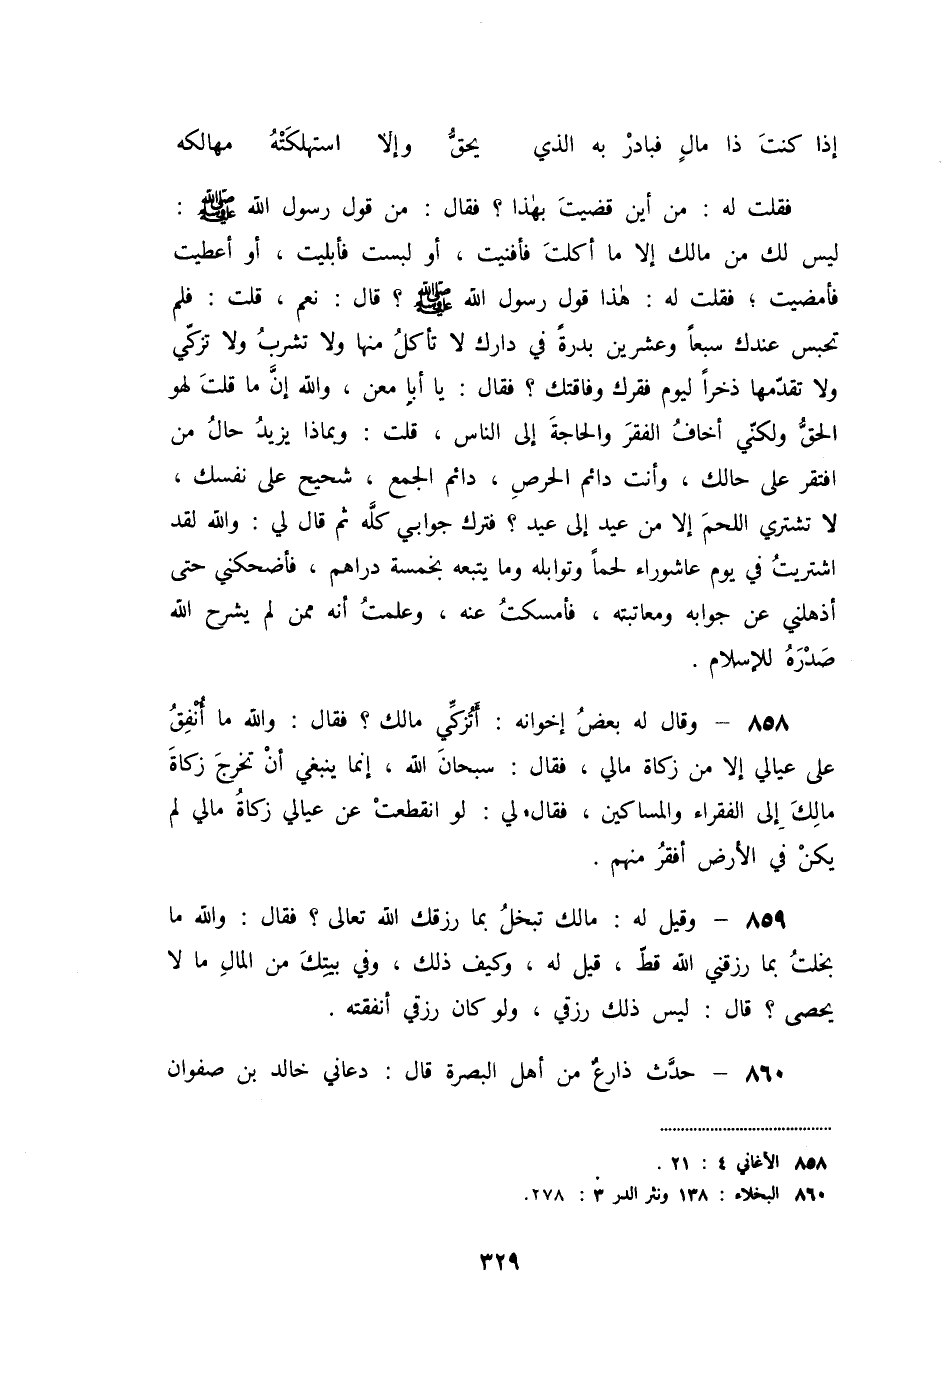 إذا كنتَ ذا مالٍ فبادرْ به الذي يحقُّ وإلا استهلكَتْهُ مهالكه
فقلت له : من أين قضيتَ بهٰذا ؟ فقال : من قول رسول الله ﷺ :
ليس لك من مالك إلا ما أكلتَ فأفنيت ، أو لبست فأبليت ، أو أعطيت
فأمضيت ؛ فقلت له : هٰذا قول رسول الله ﷺ ؟ قال : نعم ، قلت : فلم
تحبس عندك سبعاً وعشرين بدرةً في دارك لا تأكلُ منها ولا تشربُ ولا تزكّي
ولا تقدّمها ذخراً ليوم فقرك وفاقتك ؟ فقال : يا أبا معن ، والله إنَّ ما قلتَ لهو
الحقُّ ولكنّي أخافُ الفقرَ والحاجةَ إلى الناس ، قلت : وبماذا يزيدُ حالُ من
افتقر على حالك ، وأنت دائم الحرصِ ، دائم الجمع ، شحيح على نفسك ،
لا تشتري اللحمَ إلا من عيد إلى عيد ؟ فترك جوابي كلَّه ثم قال لي : والله لقد
اشتريتُ في يوم عاشوراء لحماً وتوابله وما يتبعه بخمسة دراهم ، فأضحكني حتى
أذهلني عن جوابه ومعاتبته ، فأمسكتُ عنه ، وعلمتُ أنه ممن لم يشرح الله
صَدْرَهُ للإسلام .
٨٥٨ – وقال له بعضُ إخوانه : أَتُزكِّي مالك ؟ فقال : والله ما أُنْفِقُ
على عيالي إلا من زكاة مالي ، فقال : سبحانَ الله ، إنما ينبغي أنْ تخرجَ زكاةَ
مالِكَ إلى الفقراء والمساكين ، فقال لي : لو انقطعتْ عن عيالي زكاةُ مالي لم
يكنْ في الأرض أفقرُ منهم .
٨٥٩ – وقيل له : مالك تبخلُ بما رزقك الله تعالى ؟ فقال : والله ما
بخلتُ بما رزقني الله قطّ ، قيل له ، وكيف ذلك ، وفي بيتِكَ من المالِ ما لا
يحصى ؟ قال : ليس ذلك رزقي ، ولو كان رزقي أنفقته .
٨٦٠ – حدَّث ذارعٌ من أهل البصرة قال : دعاني خالد بن صفوان
٨٥٨ الأغاني ٤ : ٢١ .
٨٦٠ البخلاء : ١٣٨ ونثر الدر ٣ : ٢٧٨.
٣٢٩